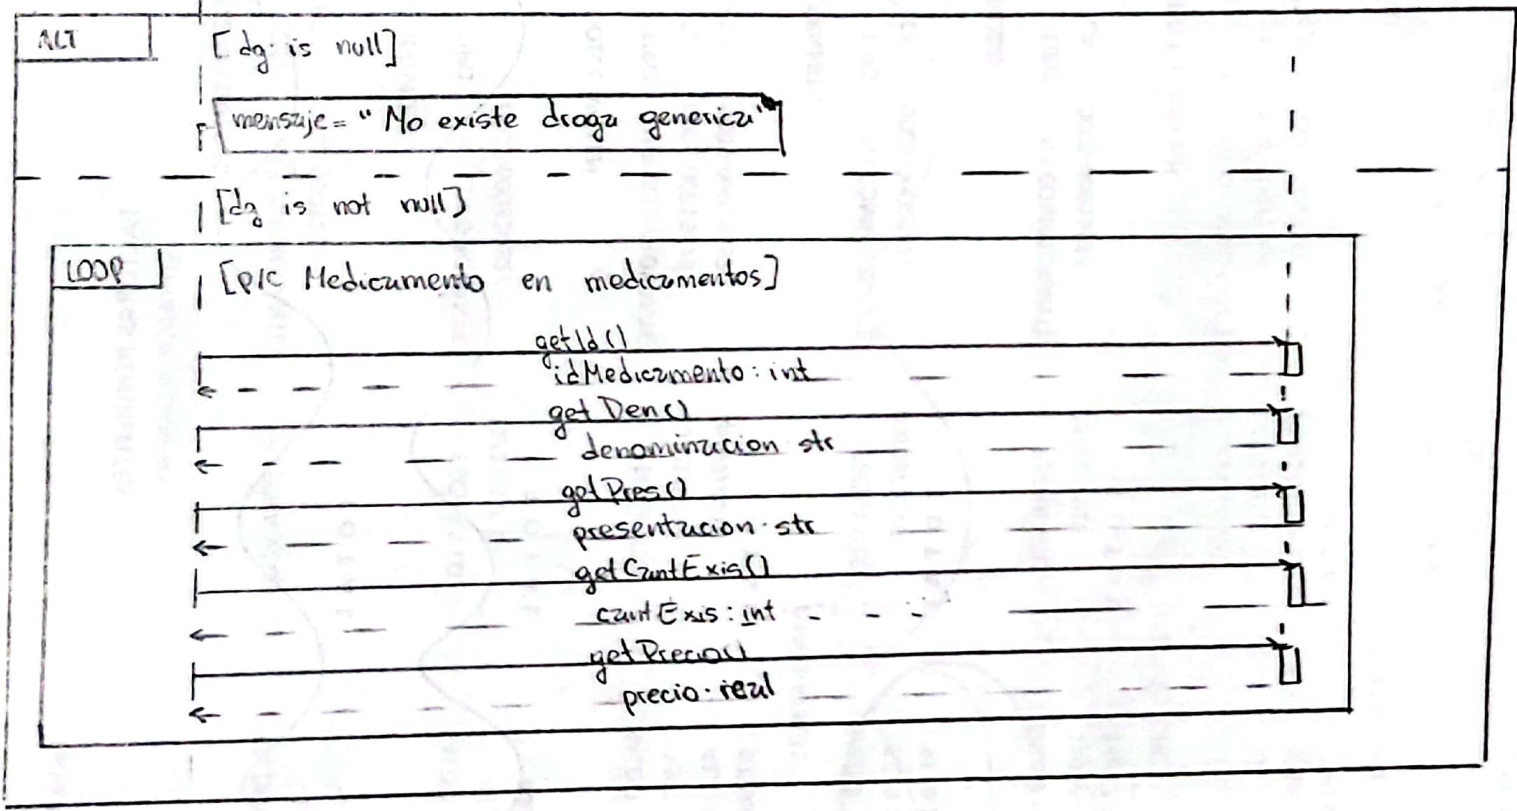 ALT
[dg is null]
mensaje = "No existe droga generica"
[dg is not null]
LOOP
[p/c Medicamento en medicamentos]
getId()
idMedicamento: int
getDen()
denominacion str
getPres()
presentacion str
getCantExis()
cantExis: int
getPrecio()
precio real